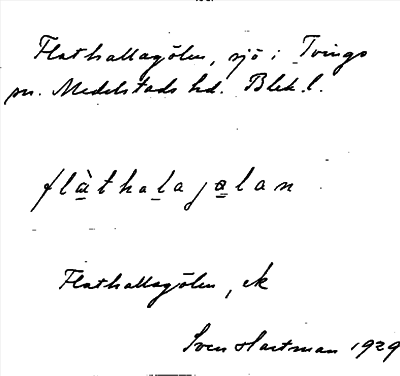 Flathallagölen, sjö i Tvings
sn. Medelstads hd. Blek. l.
flàthalajalan
Flathallagölen, ek
Sven Hartman 1929